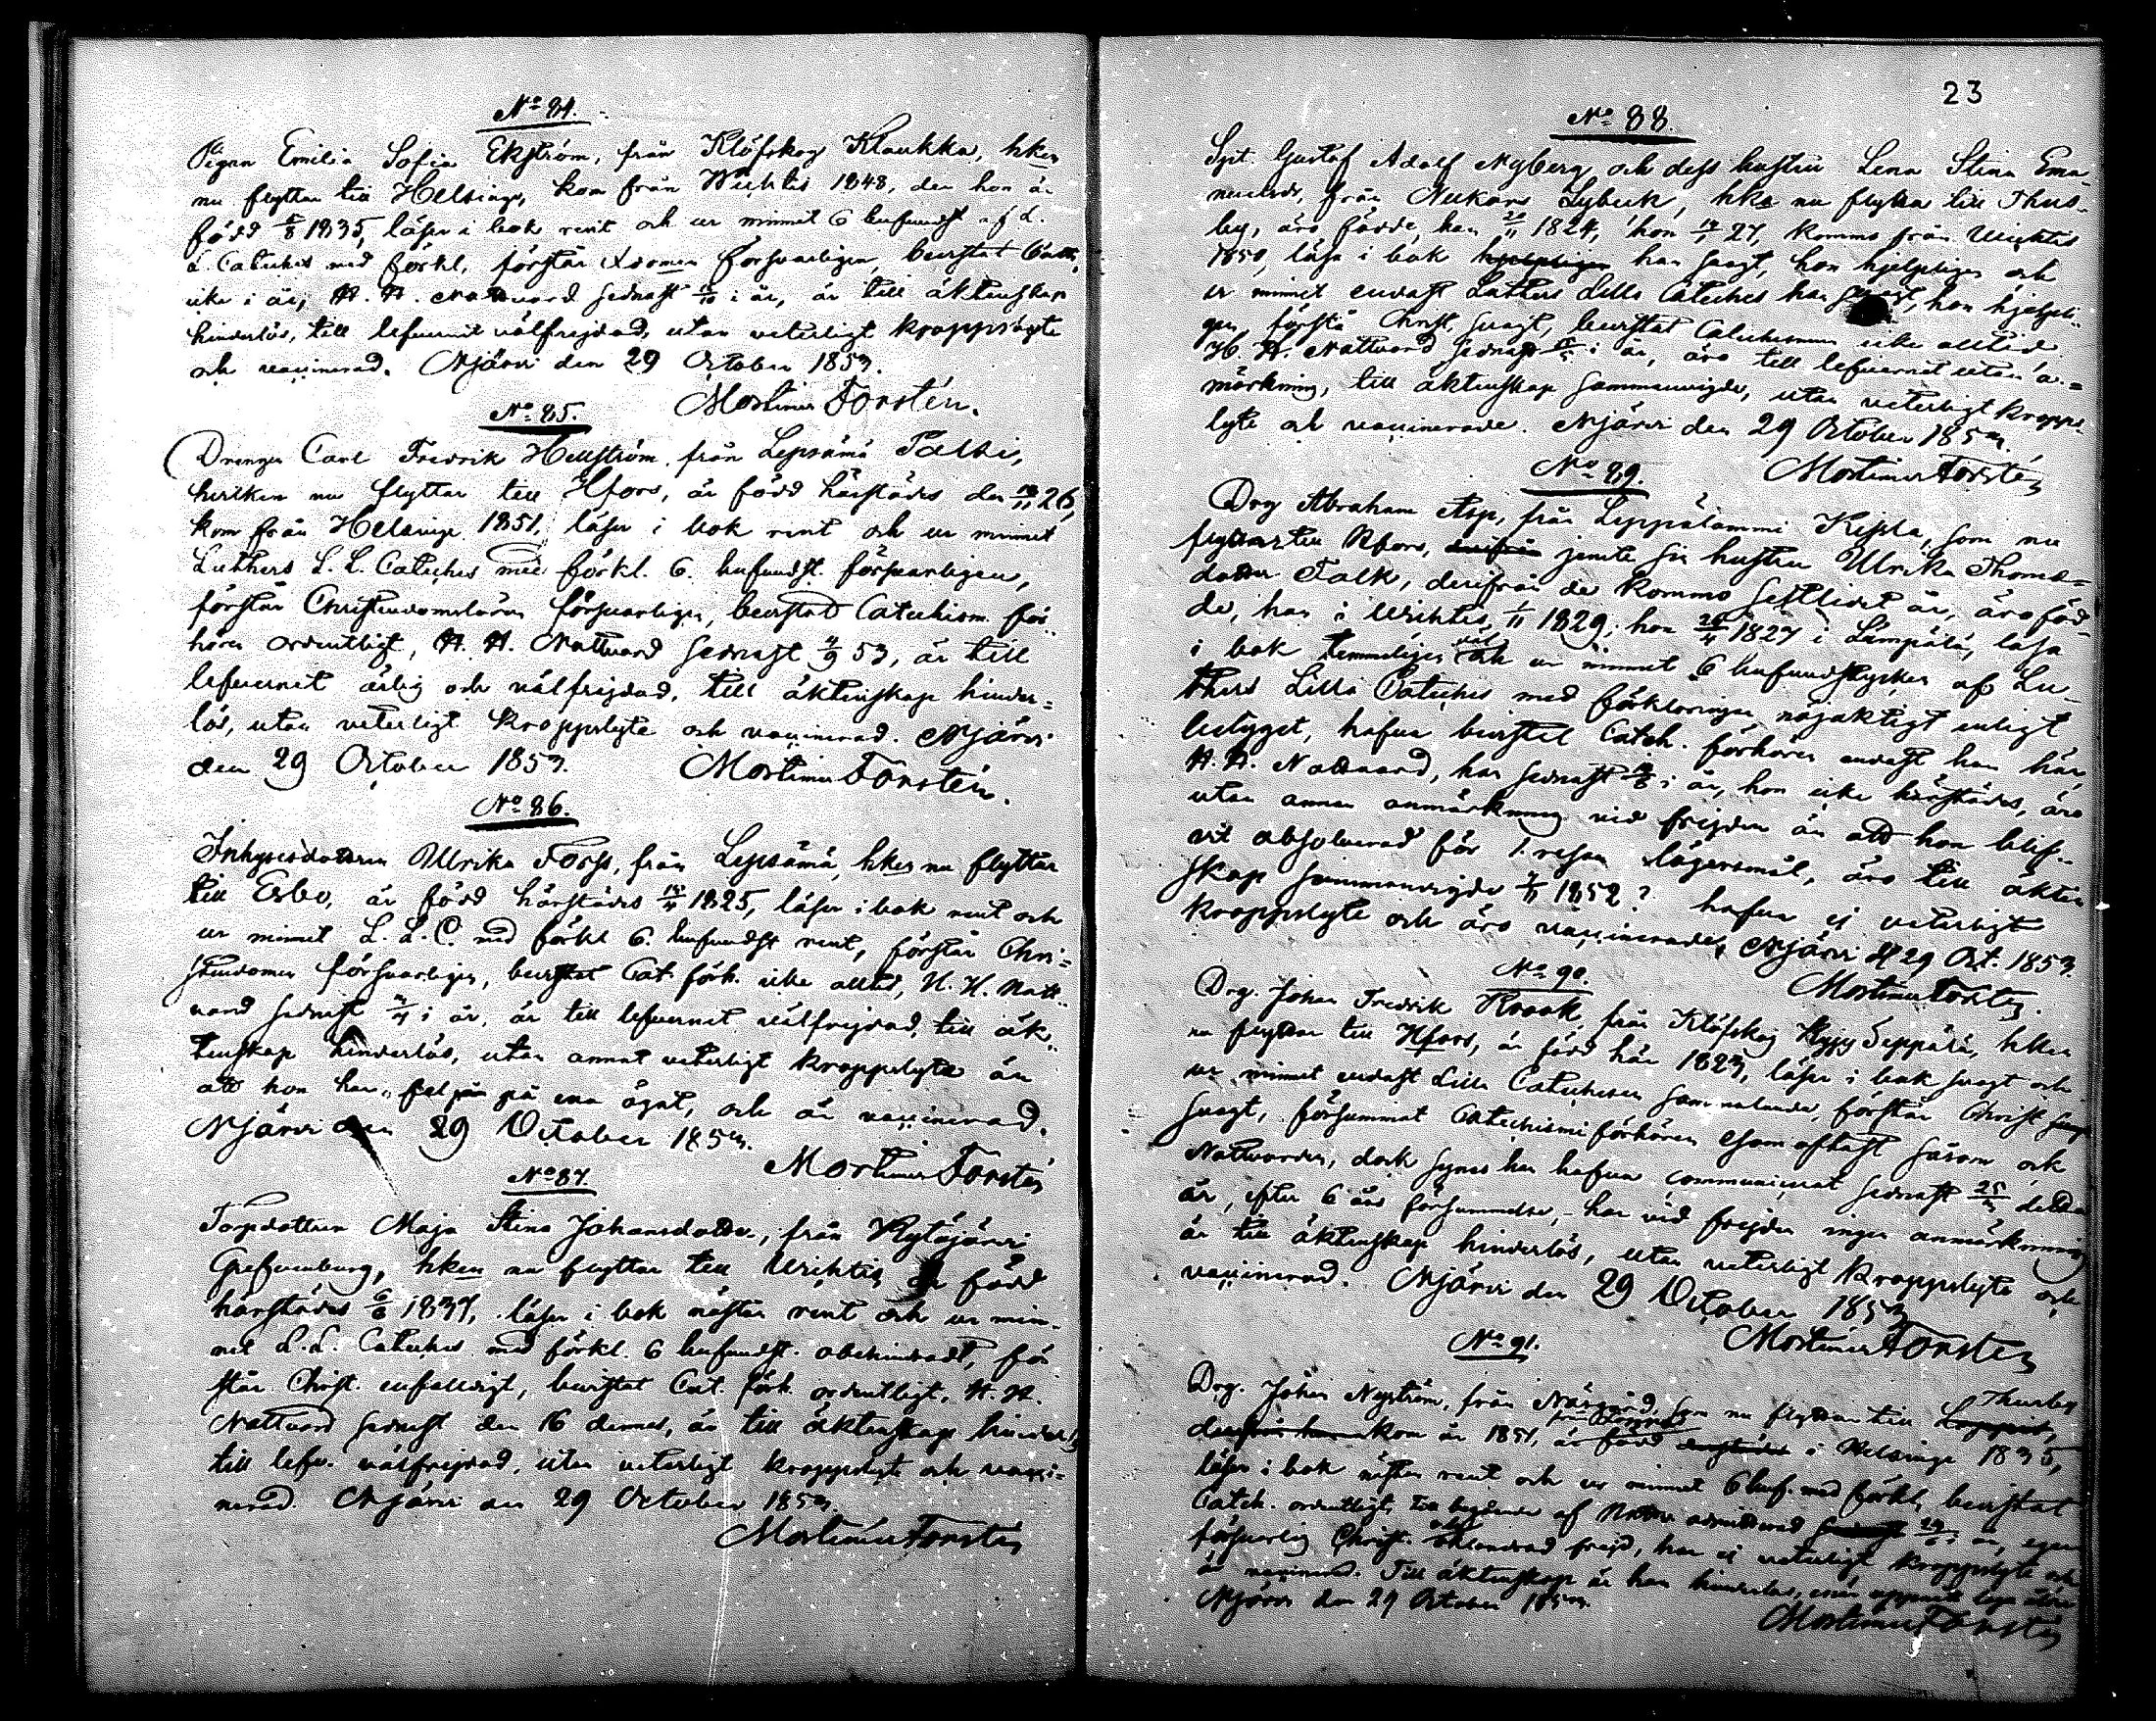 No 84.
Pigan Emilia Sofia Ekström, från Klöfskog Klaukka, hken
nu flyttar till Helsinge, kom från Wichtis 1848, der hon är
född 1835, läser i bok rent och ur minnet 6 hufvudst af L.
L. Catches med förkl, förstår försvarligen, bevistat
icke i år, H. H. Nattvard sednast i år, är till äktenskap
hinderlös, till lefvernet välfrejdad, utan veterligt kroppslyte
och vaccinerad. Njärvi den 29 October 1853.
Mortimer Forstén.
No 85.
Drengen Carl Fredrik Hellström från Lepsämä Palki,
hvilken nu flyttar till Hfors, är född härstädes den 26,
kom från Helsinge 1851, läser i bok rent och ur minnet
Luthers L. L. Catches med förkl. 6. hufvudst. försvarligen,
förstår Christendomsläran försvarligen, bevistat Catechism. för-
hören ordentligt, H. H. Nattvard sednast 4/9 53, är till
lefvernet ärlig och välfrejdad, till äktenskap hinder=
lös, utan veterligt kroppslyte och vaccinerad. Njärvi
den 29 October 1853. Mortimer Forstén.
No 86.
Inhysesdottren Ulrika Forss, från Lepsämä, hken nu flyttar
till Esbo, är född härstädes 1825, läser i bok rent och
ur minnet L. L. C. med förkl 6. hufvudst rent, förstår Chri=
stendomen försvarligen, bevistat Cat. förh. icke alltid, H. H. Natt-
vard sednast i år, är till lefvernet välfrejdad, till äk-
tenskap hinderlös, utan annat veterligt kroppslyte än
att hon har fel på ena ögat, och är vaccinerad.
Njärvi den 29 October 1853.
Mortimer Forstén
No 87.
Torpdottren Maja Stina Johansdotter, från Kytäjärvi
Grefvenburg, hken nu flyttar till Wichtis är född
härstädes 6/6 1837, läser i bok nästan rent och ur min-
net L. L. Catches med förkl. 6 hufvudst. obehindradt, för
står Christ. enfalldigt, bevistat Cat. förh ordentligt, H. H.
Nattvard sednast den 16 dennes, är till äktenskap hinderl.
till lefv. välfrejdad, utan veterligt kroppslyte och vacci-
nerad. Njärvi den 29 October 1853.
Mortimer Forstén
23
No 88.
Gustaf Adolf Nyberg och dess hustru Lena Stina Ema-
nuelsdr, från Nukars Lybeck, hka nu flytta till Thus-
by, äro födde, han 1824, hon 27, kommo från Wichtis
1850, läsa i bok hjelpligen han svagt, hon hjelpligen och
ur minnet endast Luthers Lilla Catches han svagt, hon hjelpli-
gen, förstå Christ. svagt, bevistat Catechismen icke alltid
H. H. Nattvard sednast i år, äro till lefvernet utan an=
märkning, till äktenskap sammanvigde, utan veterligt kropps-
lyte och vaccinerade. Njärvi den 29 October 1853.
Mortimer Forstén
No 89.
Drg Abraham Asp, från Leppälammi Kissla, som nu
flyttar till Hfors, derifrån jemte sin hustru Ulrika Thomas=
dotter Falk, derifrån de kommo sestlidet år, äro föd-
de, han i Wichtis 1829, hon 1827 i Lempälä, läsa
i bok temmeligen väl och ur minnet 6 hufvudstycken af Lu-
thers Lilla Catches med förklaringen nöjaktigt enligt
betyget, hafva bevistat Catch. förhören endast han här
H. H. Nattvard, han sednast i år, hon icke härstädes, äro
utan annan anmärkning vid frejden än att hon blif-
vit absolverad för 1. resan lägersmål, äro till äkten
skap sammanvigde 1852? hafva ej veterligt
kroppslyte och äro vaccinerade, Njärvi d 29 Oct. 1853.
Mortimer Forstén.
No 90.
Drg. Johan Fredrik Krook från Klöfskog Seppälä, hken
nu flyttar till Hfors, är född här 1823, läser i bok svagt och
ur minnet endast Lilla Catechesen förstår Christ
svagt, försummat Catechismi förhören som oftast såsom ock
Nattvarden, dock synes han hafva communicerat sednast detta
år, efter 6 års försummelse, - har vid frejden ingen anmärkning
är till äktenskap hinderlös, utan veterligt kroppslyte och
vaccinerad. Njärvi den 29 October 1853
Mortimer Forstén
No 91.
Drg. Johan Nyström, från som nu flyttar till Thusby
kom år 1851, är född i Helsinge 1835,
läser i bok nästan rent och ur minnet 6 huf. med förkl, bevistat
Catch. ordentligt, af admitterad i år, eger
försvarlig Christ. frejd, har ej veterligt kroppslyte och
är vaccinerad. Till äktenskap är han hinderlös,
Njärvi den 29 October 1853.
Mortimer Forstén